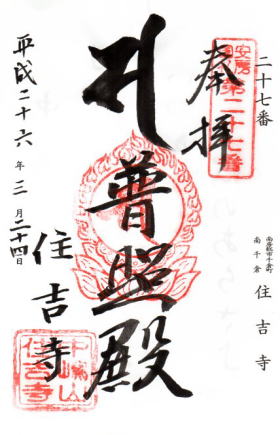 二十七番
南房総市千倉町
南千倉
住吉寺
奉拝
安房国
第二十七番
普照殿
住吉寺
平成二十六年三月二十四日